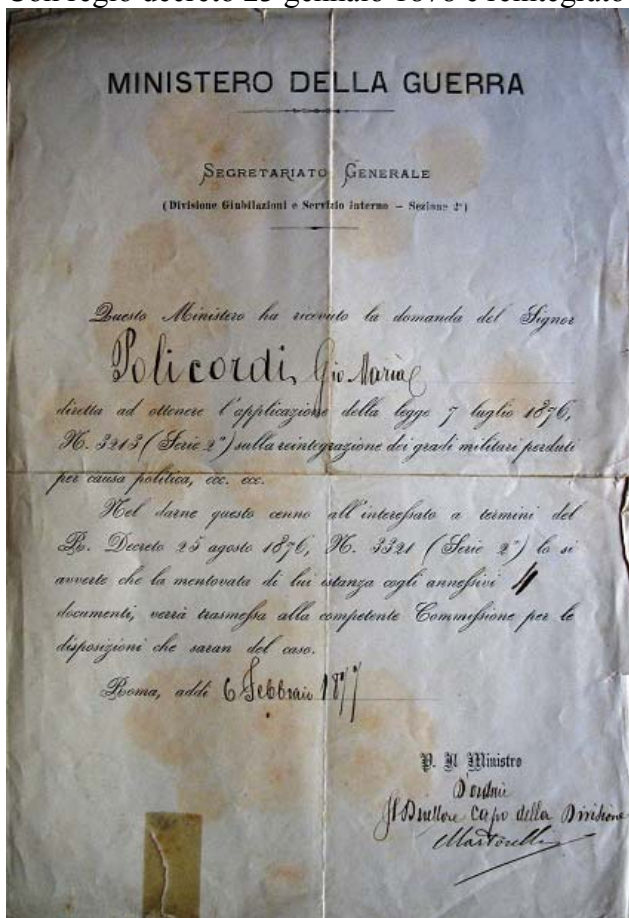 Con regio decreto 23 gennaio 1878 è reintegrato
MINISTERO DELLA GUERRA
SEGRETARIATO GENERALE
(Divisione Giubilazioni e Servizio interno – Sezione 2ª)
Questo Ministero ha ricevuto la domanda del Signor
Policordi, Gio Maria
diretta ad ottenere l'applicazione della legge 7 luglio 1876,
N. 3213 (Serie 2ª) sulla reintegrazione dei gradi militari perduti
per causa politica, ecc. ecc.
Nel darne questo cenno all'interessato a termini del
R. Decreto 25 agosto 1876, N. 3321 (Serie 2ª) lo si
avverte che la mentovata di lui istanza cogli annessivi 4
documenti, verrà trasmessa alla competente Commissione per le
disposizioni che saran del caso.
Roma, addì 6 Febbraio 1877
P. Il Ministro
D'ordine
Il Direttore Capo della Divisione
Martorelli